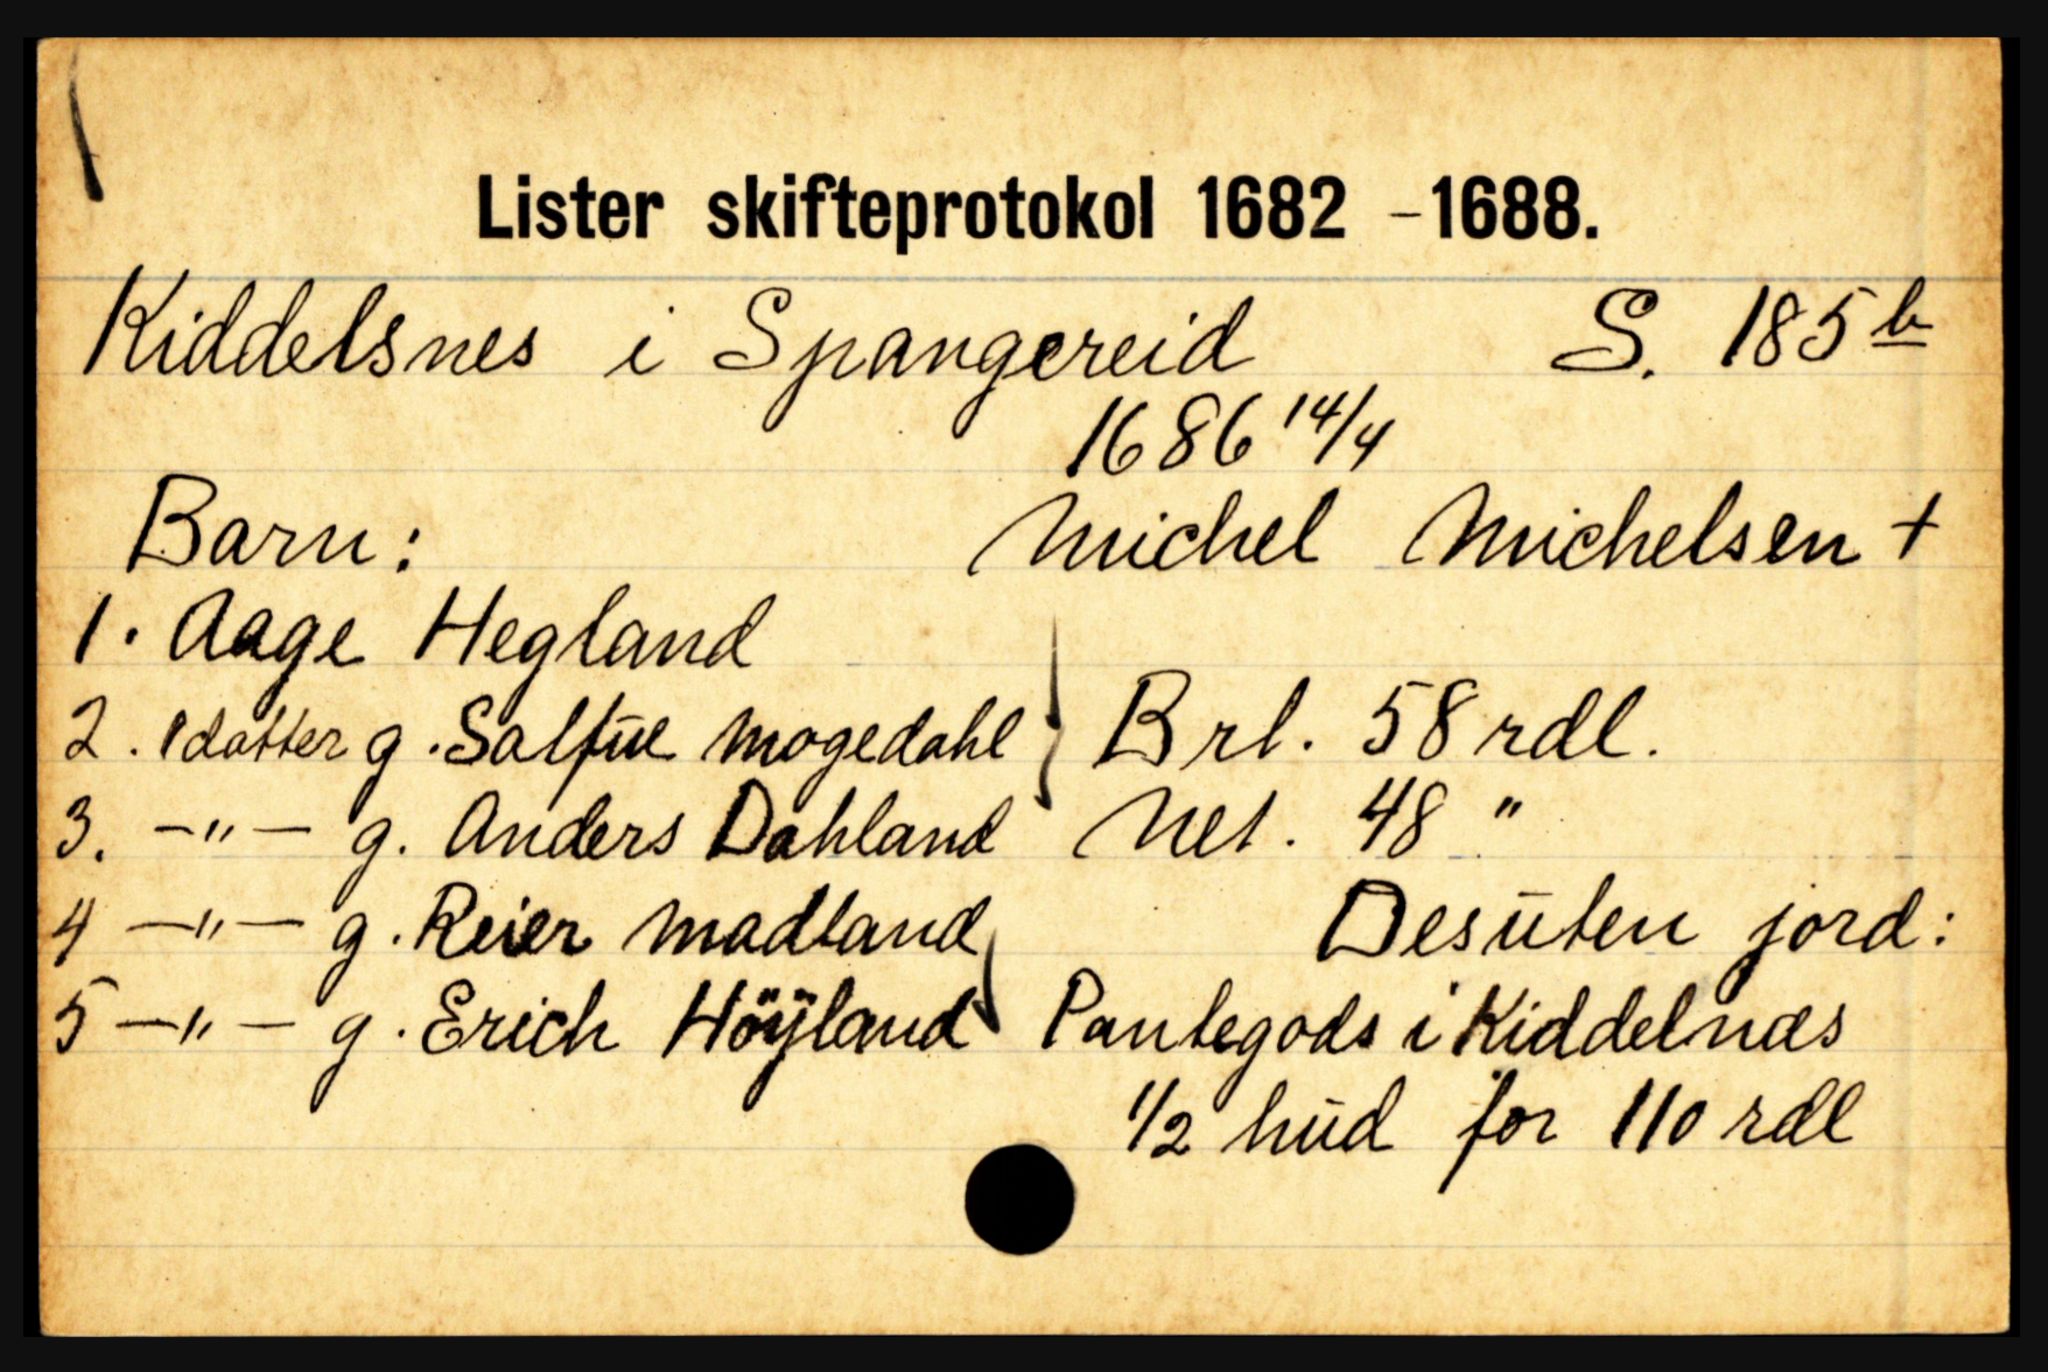 Lister skifteprotokol 1682 - 1688.
Kiddelsnes i Spangereid S. 185 b
1686 14/4
Barn: Michel Michelsen +
1. Aage Hegland
2. 1 datter g. Salfue Mogedahl Brt. 58 rdl.
3. -"- g. Anders Dahland Net. 48 "
4 -"- g. Reier Madland Desuten jord:
5 -"- g. Erich Höÿland Pantegods i Kiddelnæs
1/2 hud for 110 rdl